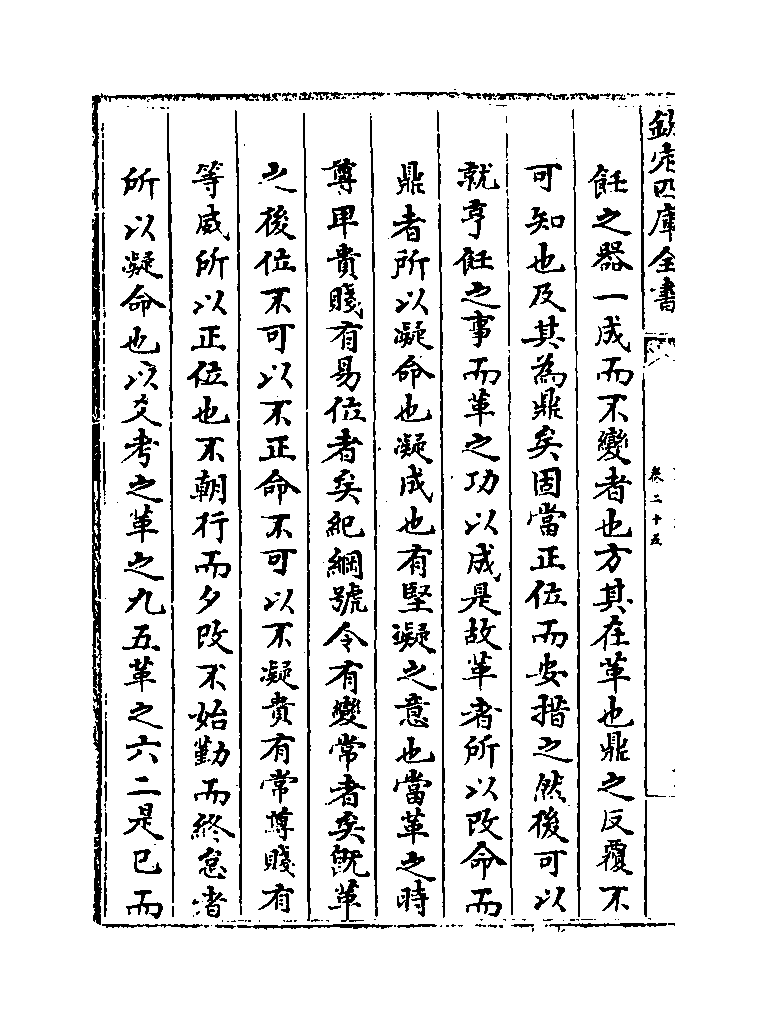 欽定四庫全書
卷二十五
飪之器一成而不變者也方其在革也鼎之反覆不
可知也及其為鼎矣固當正位而安措之然後可以
就亨飪之事而革之功以成是故革者所以改命而
鼎者所以凝命也凝成也有堅凝之意也當革之時
尊卑貴賤有易位者矣紀綱號令有變常者矣既革
之後位不可以不正命不可以不凝貴有常尊賤有
等威所以正位也不朝行而夕改不始勤而終怠者
所以凝命也以爻考之革之九五革之六二是已而